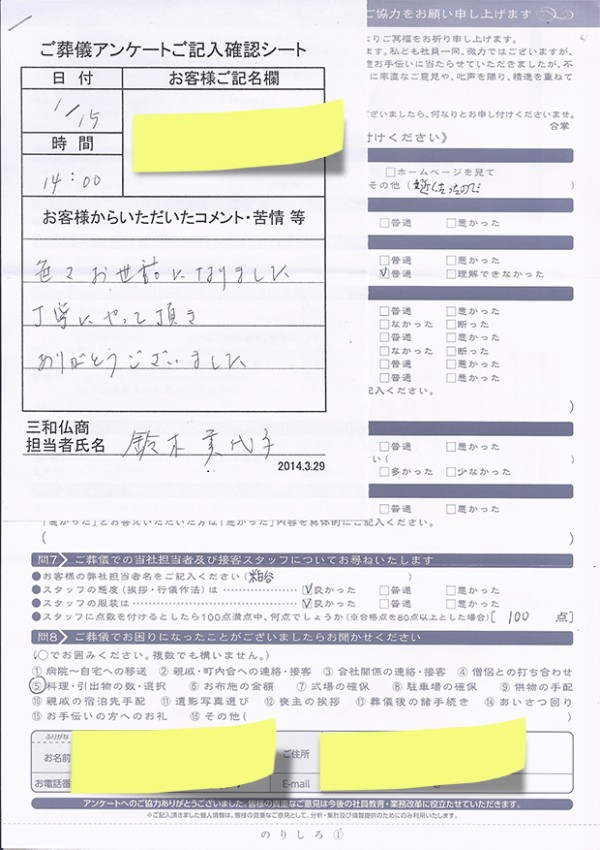 ご協力をお願い申し上げます
ご葬儀アンケートご記入確認シート
日付
お客様ご記名欄
1/15
時間
14:00
お客様からいただいたコメント・苦情 等
色々お世話になりました
丁寧にやって頂き
ありがとうございました
三和仏商
担当者氏名 鈴木美代子
2014.3.29
りご冥福をお祈り申し上げます。
ます。私ども社員一同、微力ではございますが、
お手伝いに当たらせていただきましたが、不
に率直なご意見や、叱声を賜り、精進を重ねて
ございましたら、何なりとお申し付けくださいませ。
合掌
付けください》
□ホームページを見て
その他(
□普通 □悪かった
□普通 □悪かった
☑普通 □理解できなかった
□普通 □悪かった
□なかった □断った
□普通 □悪かった
□なかった □断った
□普通 □悪かった
□普通 □悪かった
記入ください。
)
□普通 □悪かった
い(
□多かった □少なかった
□普通 □悪かった
「悪かった」とお答えいただいた方は「悪かった」内容を具体的にご記入ください。
( )
問7 ご葬儀での当社担当者及び接客スタッフについてお尋ねいたします
●お客様の弊社担当者名をご記入ください(粕谷 )
●スタッフの態度(挨拶・行儀作法)は ☑良かった □普通 □悪かった
●スタッフの服装は ☑良かった □普通 □悪かった
●スタッフに点数を付けるとしたら100点満点中、何点でしょうか(※合格点を80点以上とした場合)[ 100 点]
問8 ご葬儀でお困りになったことがございましたらお聞かせください
(○でお囲みください。複数でも構いません。)
①病院〜自宅への移送 ②親戚・町内会への連絡・接客 ③会社関係の連絡・接客 ④僧侶との打ち合わせ
⑤料理・引出物の数・選択 ⑥お布施の金額 ⑦式場の確保 ⑧駐車場の確保 ⑨供物の手配
⑩親戚の宿泊先手配 ⑪遺影写真選び ⑫喪主の挨拶 ⑬葬儀後の諸手続き ⑭あいさつ回り
⑮お手伝いの方へのお礼 ⑯その他( )
ふりがな
お名前
ご住所
お電話番
E-mail
アンケートへのご協力ありがとうございました。皆様の貴重なご意見は今後の社員教育・業務改革に役立たせていただきます。
※ご記入頂きました個人情報は、皆様の貴重なご意見として、分析・集計及び情報提供のためにのみ利用いたします。
のりしろ①